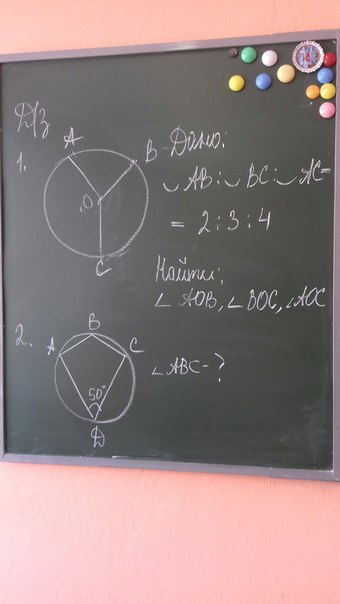 Д/з
1.
A
B
O
C
Дано:
◡ AB : ◡ BC : ◡ AC =
= 2 : 3 : 4
Найти:
∠ AOB, ∠ BOC, ∠AOC
2.
B
A
C
50°
Д
∠ABC - ?